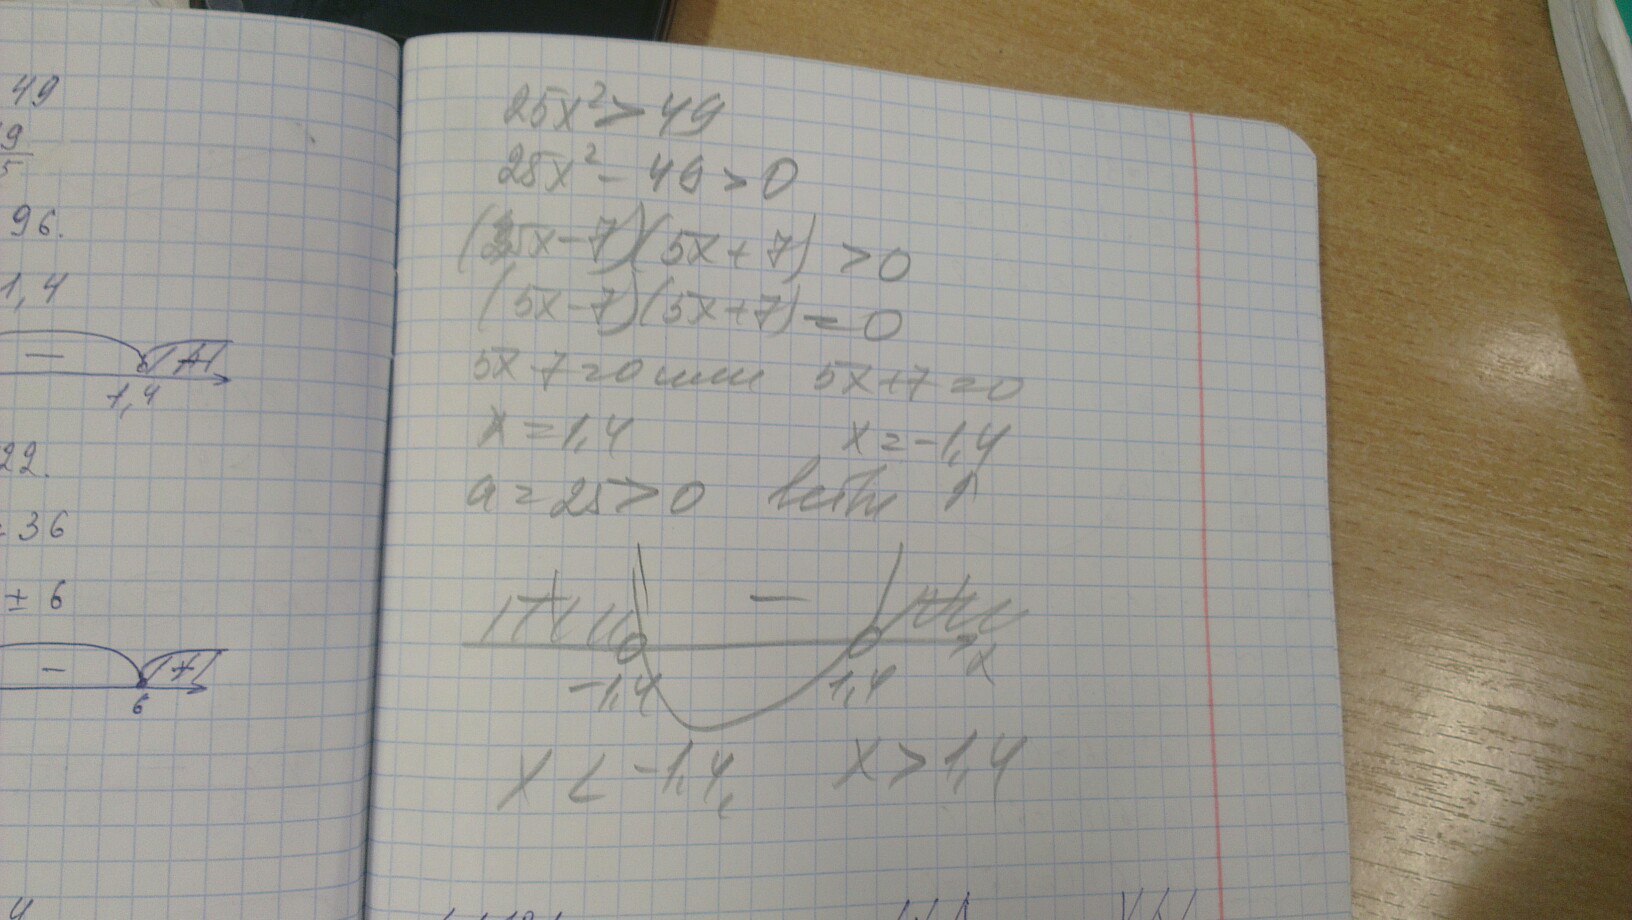 49
9
5
96.
1,4
− +
1,4
22.
36
± 6
− +
6
25x² > 49
25x² - 49 > 0
(5x - 7)(5x + 7) > 0
(5x - 7)(5x + 7) = 0
5x - 7 = 0 или 5x + 7 = 0
x = 1,4 x = -1,4
a = 25 > 0 ветви ↑
+ − +
-1,4 1,4 x
x < -1,4, x > 1,4